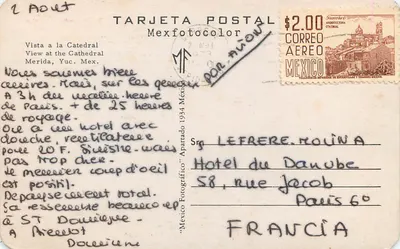 2 Aout
TARJETA POSTAL
Mexfotocolor
Vista a la Catedral
View at the Cathedral
Merida, Yuc. Mex.
MF
POR AVION
$2.00
CORREO
AEREO
MEXICO
ARQUITECTURA
COLONIAL
"Mexico Fotográfico" Apartado 1954 México
Nous sommes bien
arrives. Mais, sur les genoux
A 3h du matin heure
de Paris. + de 25 heures
de voyage.
On a un hotel avec
douche, ventilateur
pour 20 F. Sinistre mais
pas trop cher.
Le premier coup d'oeil
est positif.
Depaysement total.
Ça ressemble beaucoup
à ST Domingue.
A Bientot
Sr
LEFRERE-MOLINA
Hotel du Danube
58, rue Jacob
Paris 6º
FRANCIA